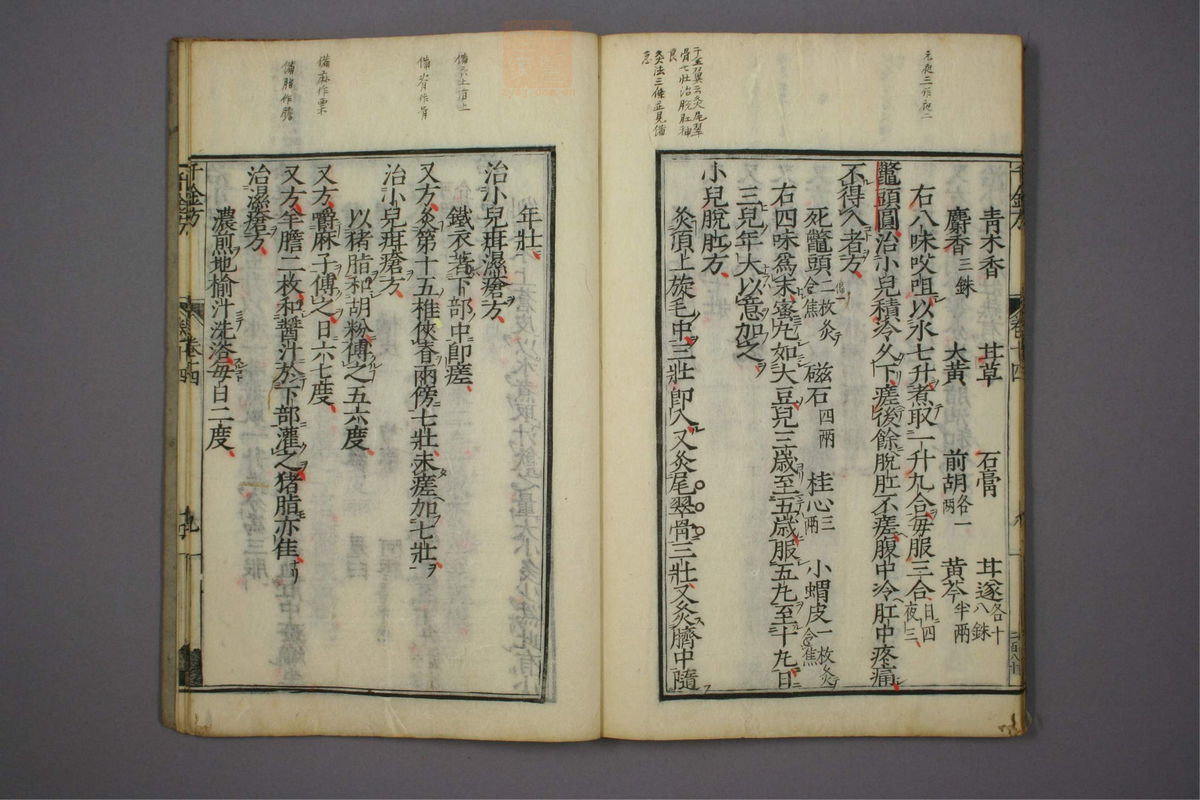 青木香 甘草 石膏 甘遂各十八銖
麝香三銖 大黃 前胡各一兩 黃芩半兩
右八味㕮咀以水七升煮取一升九合每服三合日四夜三
鼈頭圓治小兒積冷久下瘥後餘脫肛不瘥腹中冷肛中疼痛
不得入者方
死鼈頭二枚灸令焦 磁石四兩 桂心三兩 小蝟皮一枚灸令焦
右四味爲末蜜丸如大豆兒三歲至五歲服五丸至十丸日
三兒年大以意加之
小兒脫肛方
灸頂上旋毛中三壯卽入又灸尾翠骨三壯又灸臍中隨
年壯
治小兒疳濕瘡方
鐵衣著下部中卽瘥
又方灸第十五椎俠脊兩傍七壯未瘥加七壯
治小兒疳瘡方
以猪脂和胡粉傅之五六度
又方嚼麻子傅之日六七度
又方羊膽二枚和醬汁於下部灌之猪脂亦佳
治濕瘡方
濃煎地榆汁洗浴每日二度
千金方
卷十四
千金方
卷十四
九
元夜三作夜二
千金翼云灸尾翠
骨七壯治脫肛神
良
灸法三條並見備
急
備云上有上
備脊作骨
備麻作栗
備脂作膽